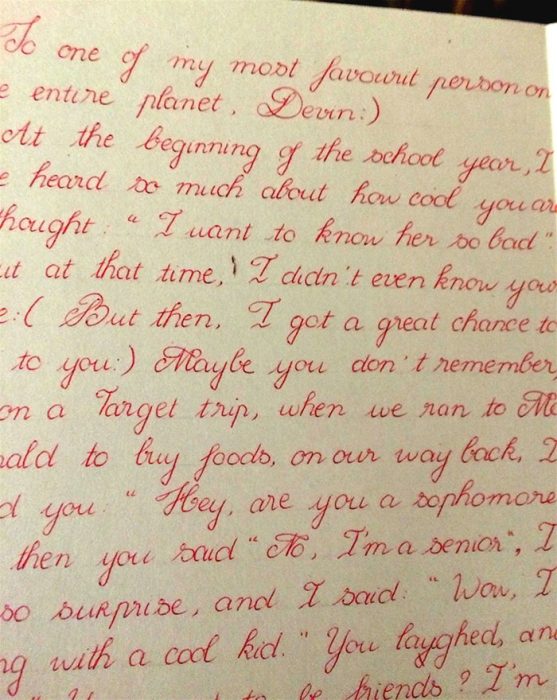 To one of my most favourit person on
e entire planet, Devin:)
At the beginning of the school year, I
e heard so much about how cool you are
hought: "I want to know her so bad"
ut at that time, I didn't even know you
e:( But then, I got a great chance to
to you:) Maybe you don't remember,
on a Target trip, when we ran to Mc
nald to buy foods, on our way back, I
d you "Hey, are you a sophomore
then you said "No, I'm a senior", I
so surprise, and I said: "Wow, I
ng with a cool kid." You layghed, and
to be friends? I'm